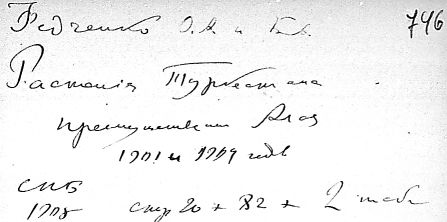 Федченко О.А. и Б.А. 746
Растения Туркестана
преимущественно Алая
1901 и 1904 годъ
СПБ
стр 20 + 82 + 2 табл